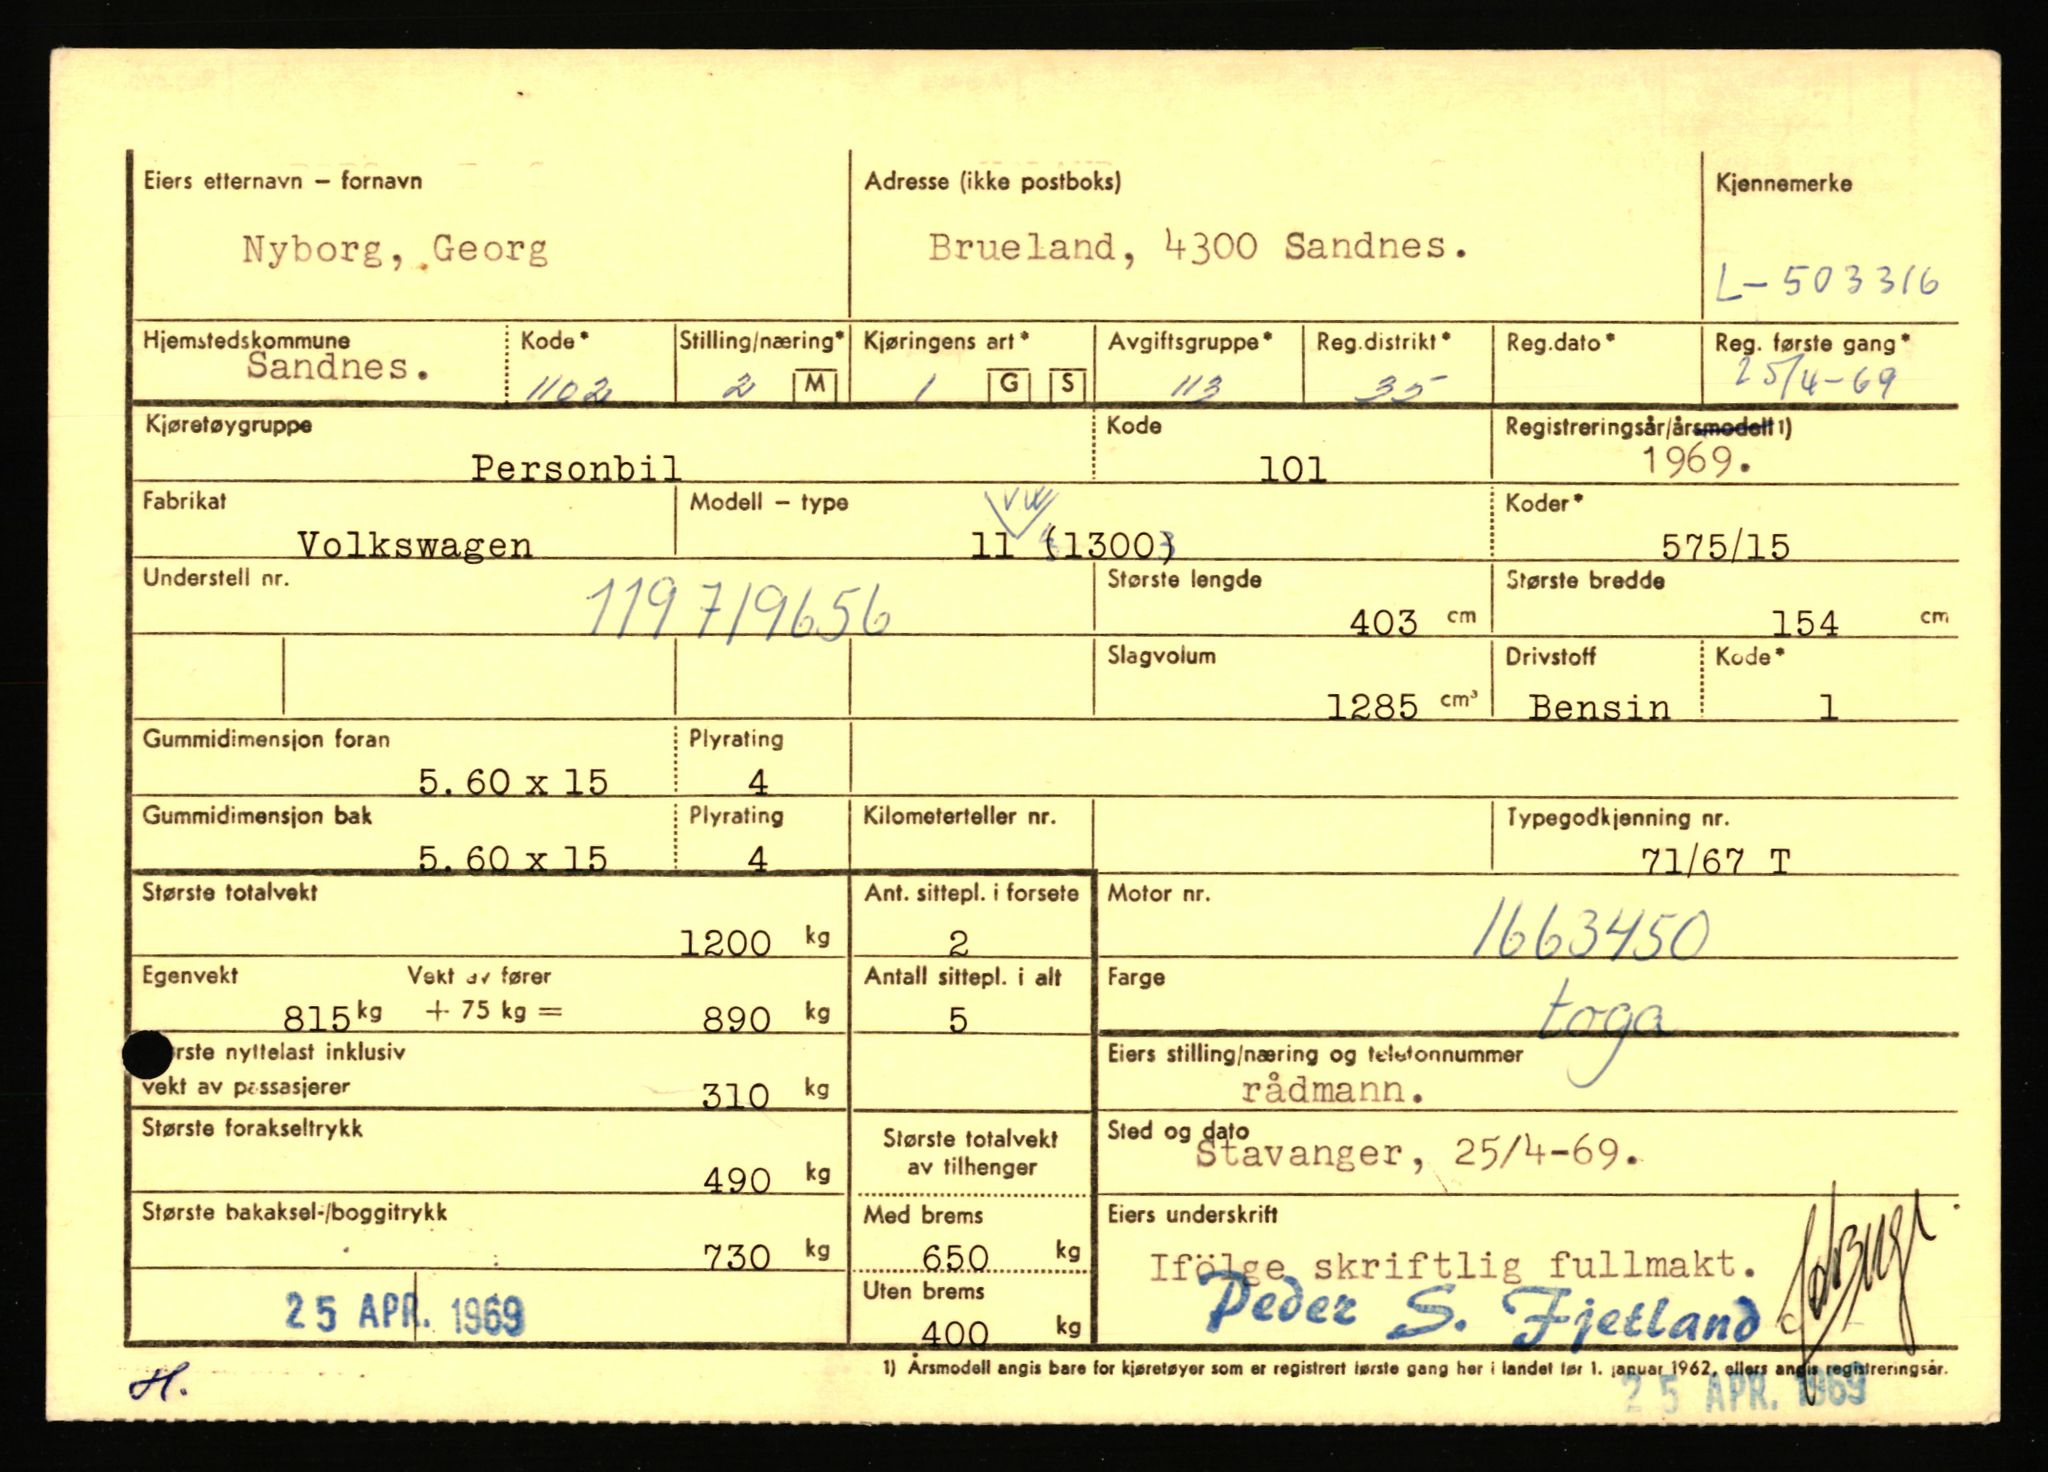 Eiers etternavn – fornavn
Nyborg, Georg
Adresse (ikke postboks)
Brueland, 4300 Sandnes.
Kjennemerke
L-503316
Hjemstedskommune
Sandnes.
Kode*
1102
Stilling/næring*
2 M
Kjøringens art*
1 G S
Avgiftsgruppe*
113
Reg.distrikt*
35
Reg.dato*
Reg. første gang*
25/4-69
Kjøretøygruppe
Personbil
Kode
101
Registreringsår/årsmodell 1)
1969.
Fabrikat
Volkswagen
Modell – type
VW
11 (1300)
Koder*
575/15
Understell nr.
119719656
Største lengde
403 cm
Største bredde
154 cm
Slagvolum
1285 cm³
Drivstoff
Bensin
Kode*
1
Gummidimensjon foran
5.60 x 15
Plyrating
4
Gummidimensjon bak
5.60 x 15
Plyrating
4
Kilometerteller nr.
Typegodkjenning nr.
71/67 T
Største totalvekt
1200 kg
Ant. sittepl. i forsete
2
Motor nr.
1663450
Egenvekt
815 kg
Vekt av fører
+ 75 kg =
890 kg
Antall sittepl. i alt
5
Farge
toga
rste nyttelast inklusiv
vekt av passasjerer
310 kg
Eiers stilling/næring og telefonnummer
rådmann.
Største forakseltrykk
490 kg
Største totalvekt
av tilhenger
Sted og dato
Stavanger, 25/4-69.
Største bakaksel-/boggitrykk
730 kg
Med brems
650 kg
Uten brems
400 kg
Eiers underskrift
Ifölge skriftlig fullmakt.
Peder S. Fjetland
25 APR. 1969
1) Årsmodell angis bare for kjøretøyer som er registrert første gang her i landet før 1. januar 1962, ellers angis registreringsår.
25 APR. 1969
H.